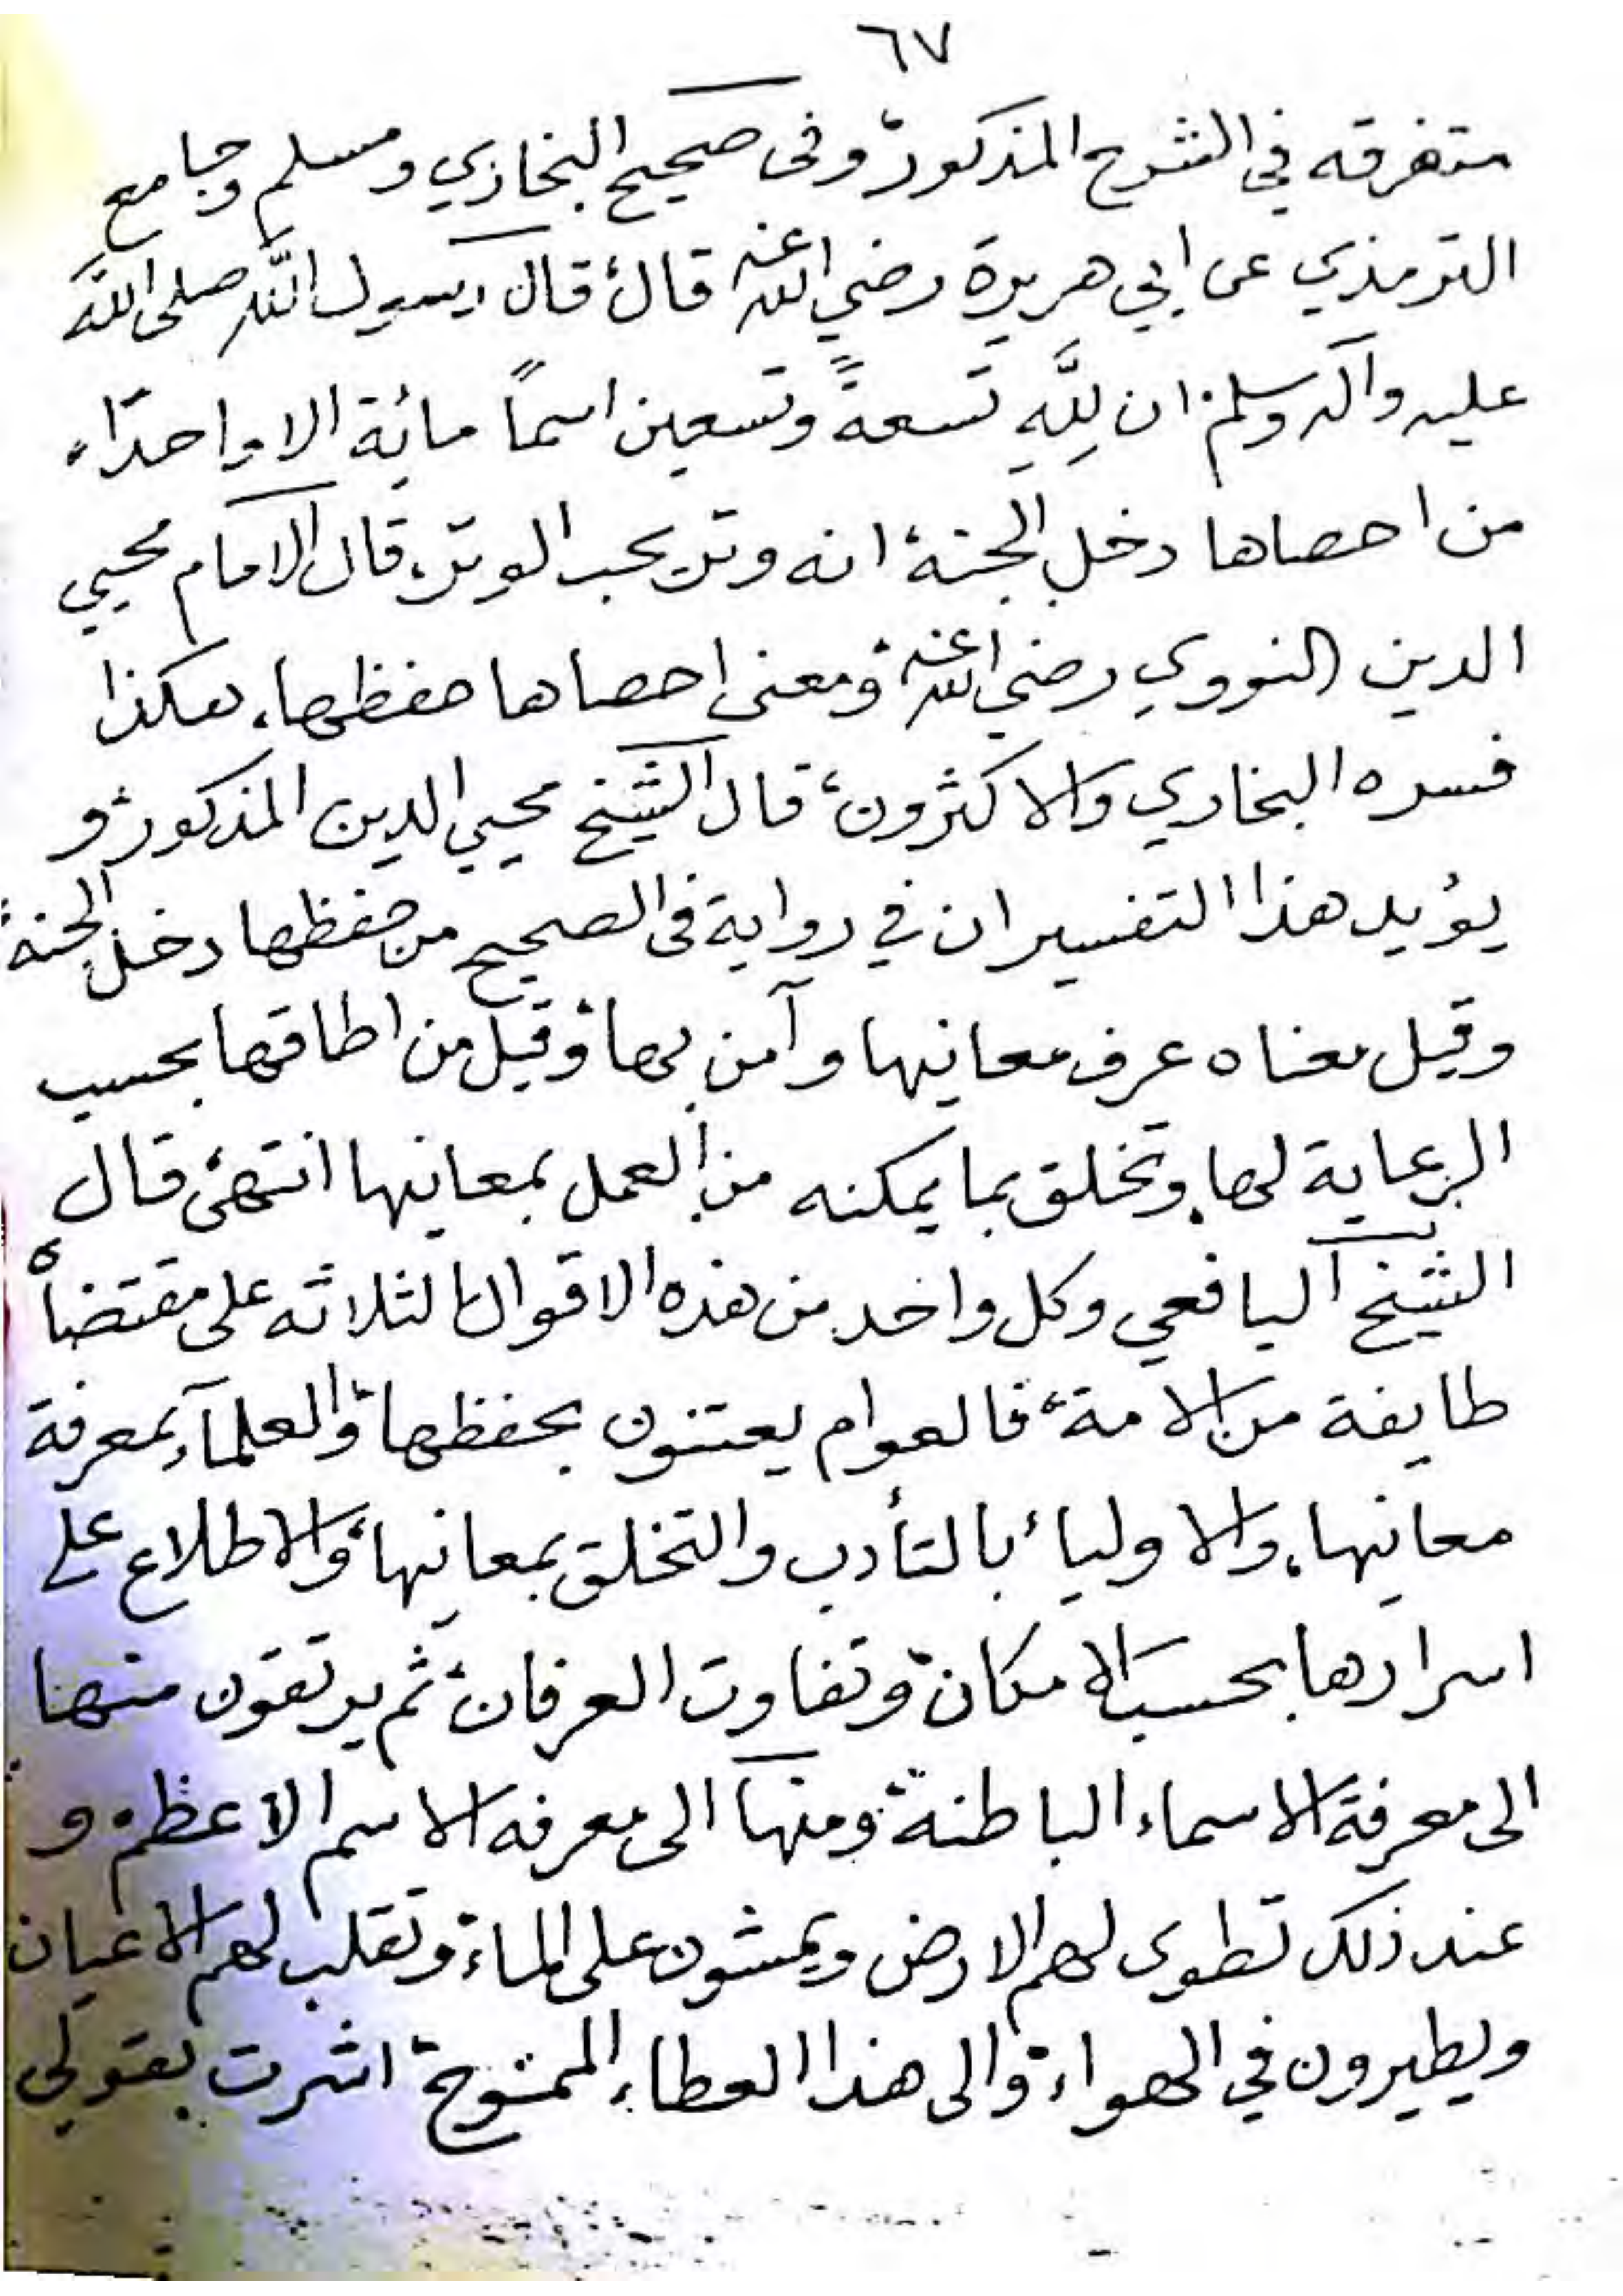 ٦٧
متفرقه في الشرح المذكور، وفى صحيح البخاري ومسلم وجامع
الترمذي عن ابي هريرة رضي الله عنه قال، قال رسول الله صلى الله
عليه وآله وسلم: ان لِلَّهِ تسعةً وتسعين اسماً مائة الا واحدًا،
من احصاها دخل الجنة، انه وتر يحب الوتر، قال الامام محيي
الدين النووي رضي الله عنه، ومعنى احصاها حفظها، هكذا
فسره البخاري والاكثرون، قال الشيخ محيي الدين المذكور، و
يؤيد هذا التفسير ان في رواية فى الصحيح من حفظها دخل الجنة،
وقيل معناه عرف معانيها وآمن بها، وقيل من اطاقها بحسب
الرعاية لها، وتخلق بما يمكنه من العمل بمعانيها انتهى، قال
الشيخ اليافعي وكل واحد من هذه الاقوال الثلاثه على مقتضاه
طايفة من الامة، فالعوام يعتنون بحفظها، والعلمآء بمعرفة
معانيها، والاولياء بالتأدب والتخلق بمعانيها، والاطلاع على
اسرارها بحسب الامكان، وتفاوت العرفان، ثم يرتقون منها
الى معرفة الاسماء الباطنة، ومنها الى معرفه الاسم الاعظم، و
عند ذلك تطوى لهم الارض ويمشون على الماء، وتقلب لهم الاعيان
ويطيرون في الهواء، والى هذا العطاء الممنوح، اشرت بقولى